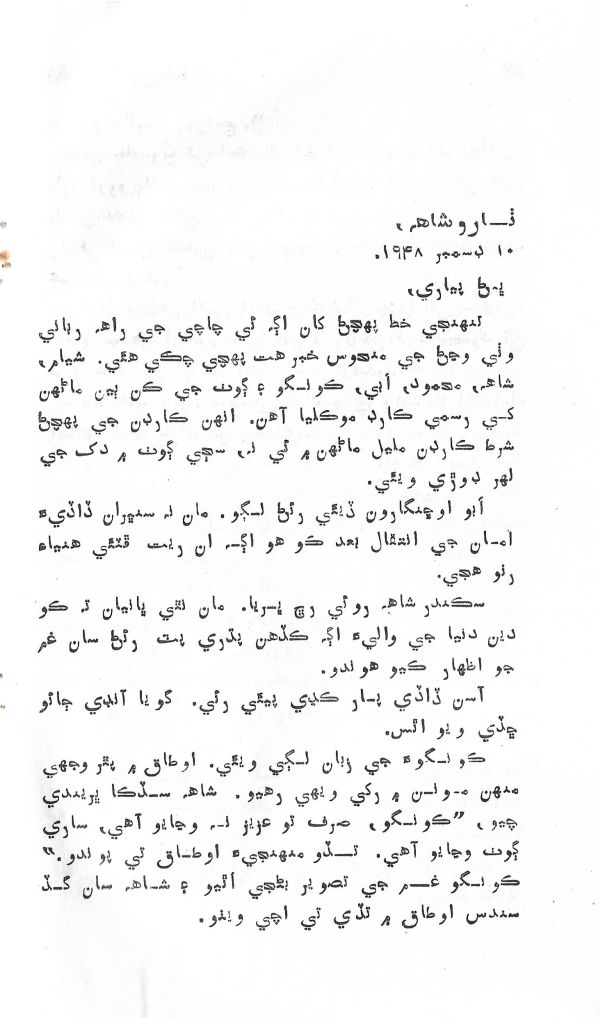 ٺارو شاهه،
۱۰ ڊسمبر ۱۹۴۸.
ڀيڻ پياري،
تنهنجي خط پهچڻ کان اڳ ئي چاچي جي راهه رباني
وٺي وڃڻ جي منحوس خبر هت پهچي چڪي هئي. شيام،
شاهه، محمود، اُبي، کونگو ۽ ڳوٺ جي ڪن ٻين ماڻهن
کي رسمي ڪارڊ موڪليا آهن. انهن ڪارڊن جي پهچڻ
شرط ڪارڊن مليل ماڻهن ۾ ئي نه، سڄي ڳوٺ ۾ دک جي
لهر ڊوڙي ويئي.
اَبو اوڇنگارون ڏيئي رئڻ لڳو. مان نه سنڀران ڏاڏيءَ
امان جي انتقال بعد ڪو هو اڳ ان ريت ڦٽڦي هنياءَ
رنو هجي.
سڪندر شاهه روئي رڇ ڀريا. مان نٿي ڀانيان ته ڪو
دين دنيا جي واليءَ اڳ ڪڏهن پڌري پٽ رئڻ سان غم
جو اظهار ڪيو هوندو.
آسن ڏاڏي پار ڪڍي پيئي رئي. گويا آنڊي ڄائو
ڇڏي ويو اٿس.
کونگوءَ جي زبان لڳي ويئي. اوطاق ۾ پٿر وڇائي
منهن مونن ۾ رکي ويهي رهيو. شاهه سڏڪا ڀريندي
چيو، ”کونگو، صرف تو عزيز نه وڃايو آهي، ساري
ڳوٺ وڃايو آهي. تڏو منهنجيءَ اوطاق تي پوندو.“
کونگو غم جي تصوير بڻجي اُٿيو ۽ شاهه سان گڏ
سندس اوطاق ۾ تڏي تي اچي ويٺو.